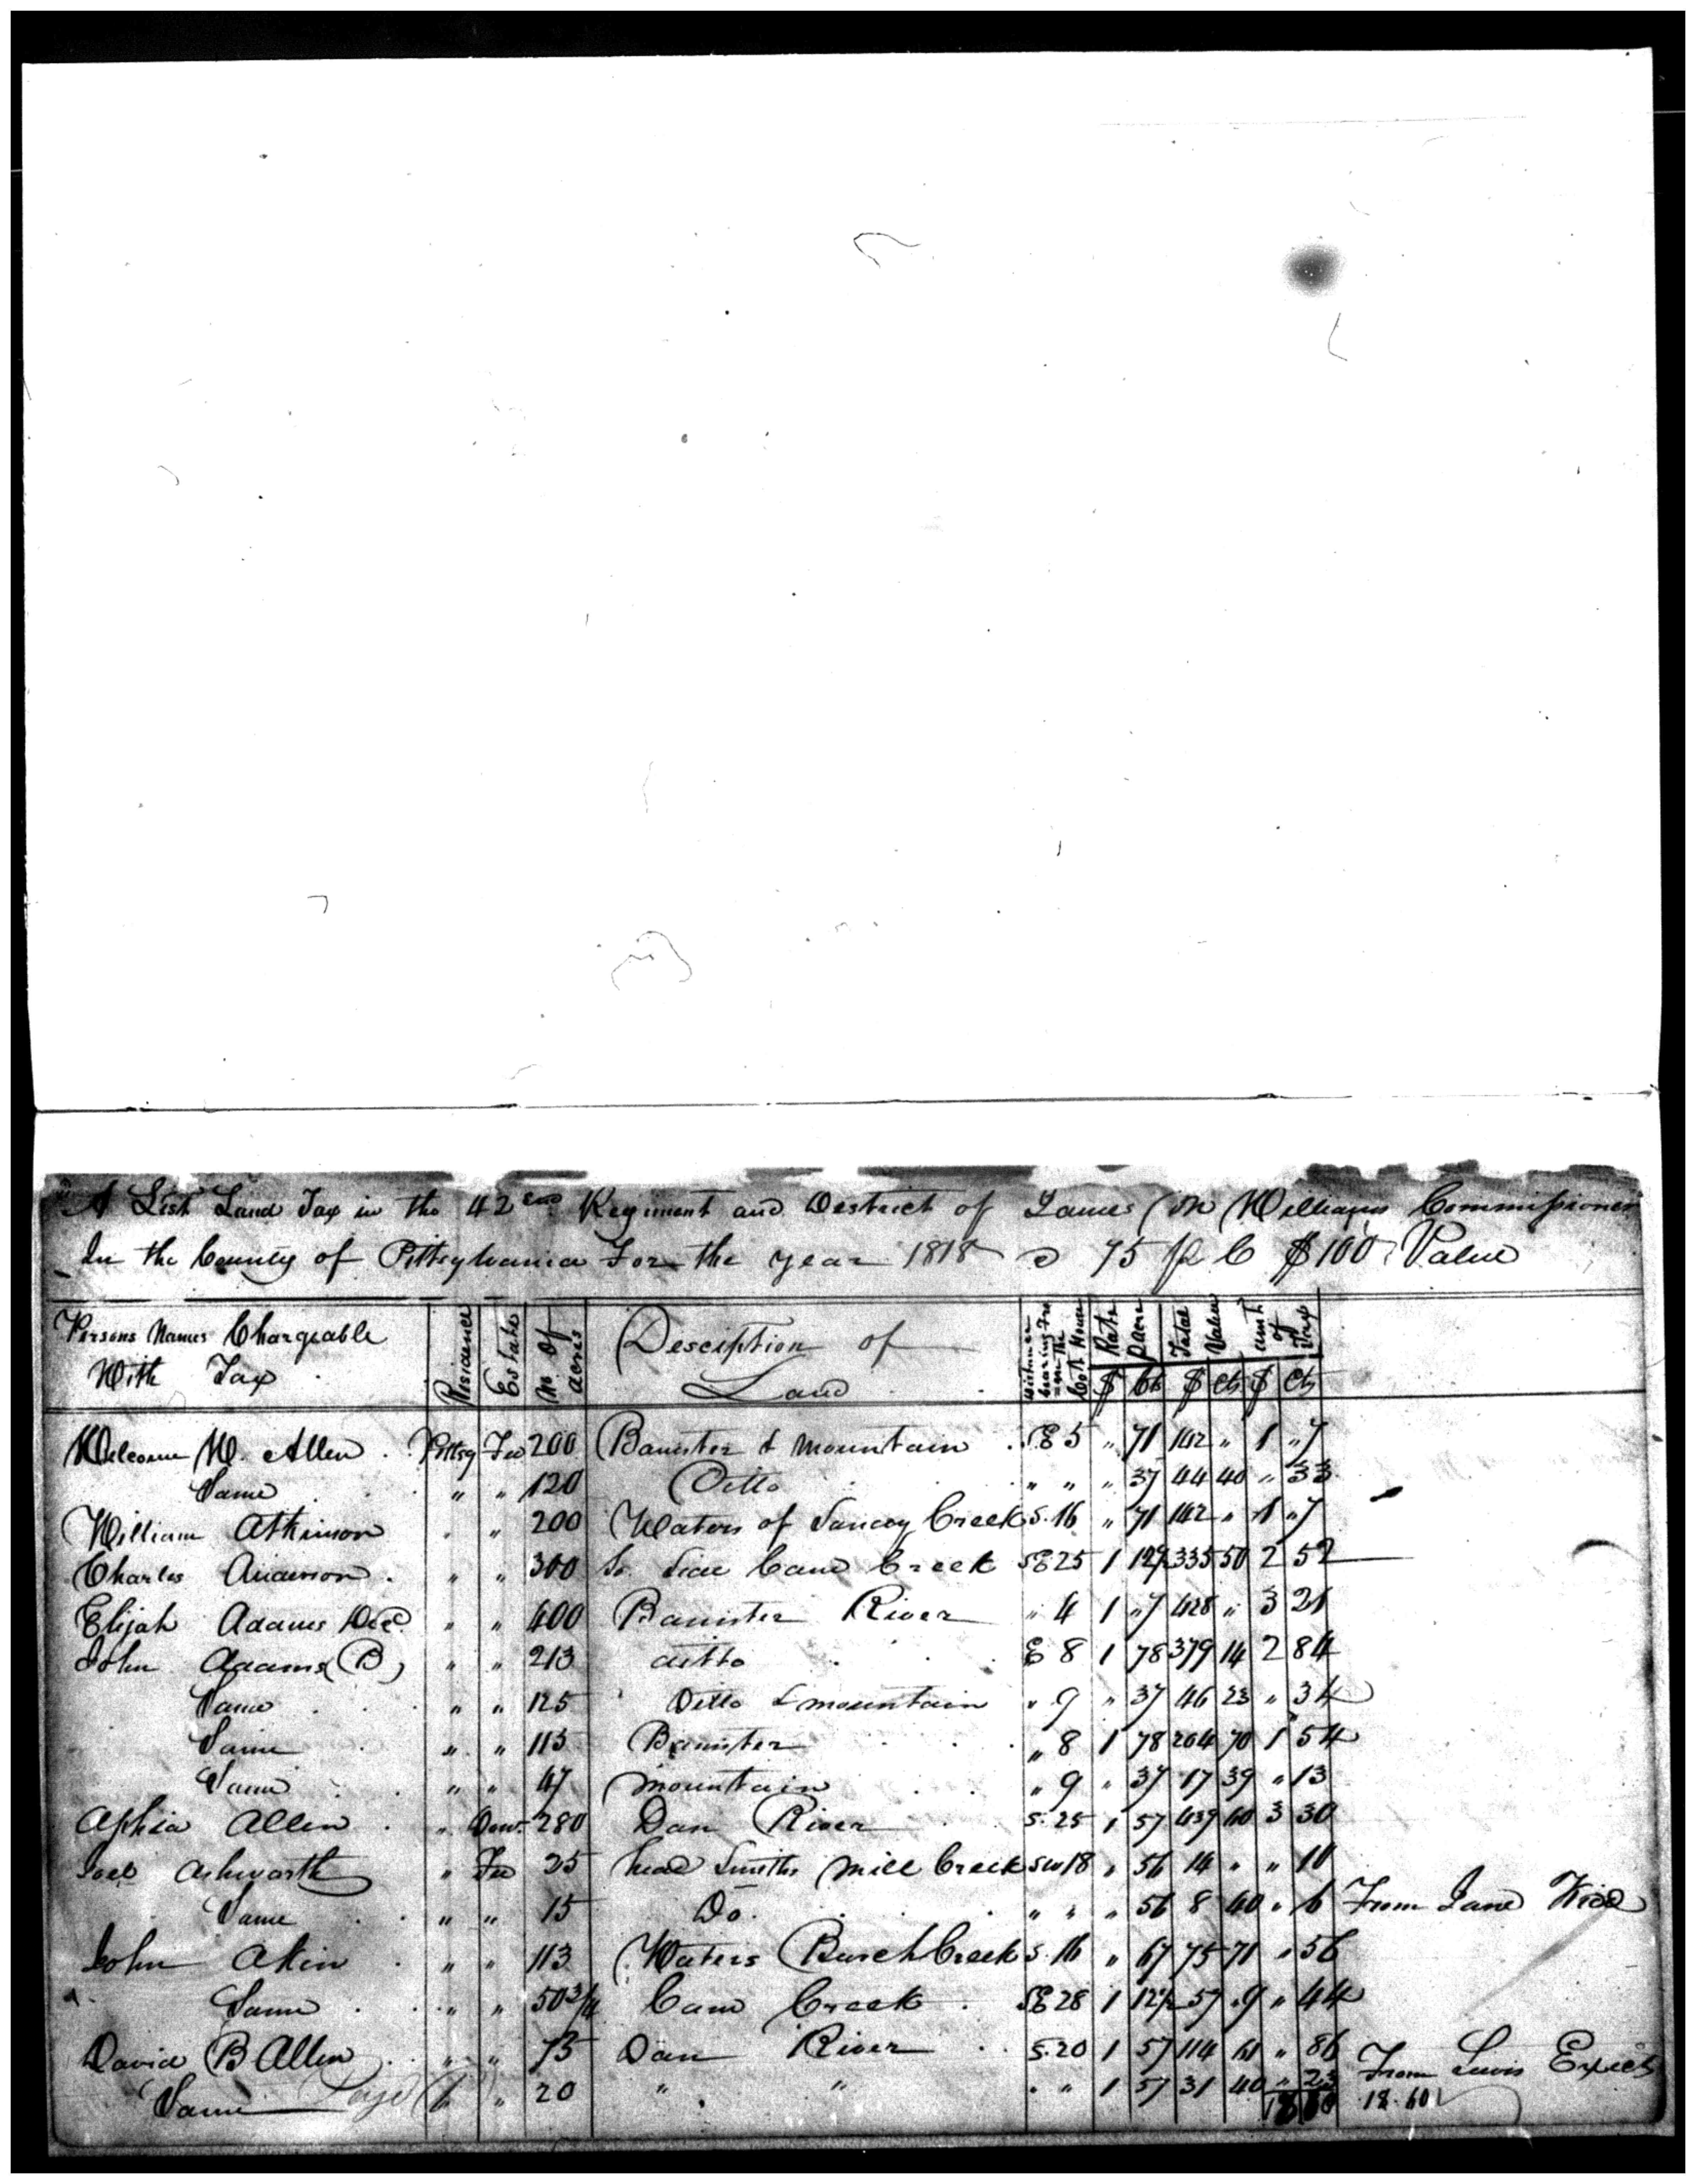 A List Land Tax in the 42nd Regiment and District of James Mc Williams Commissioner
In the County of Pittsylvania For the year 1818 @ 75 p C $100 Value
Persons Names Chargeable With Tax | Residence | Estate | No Of acres | Desciption of Land | Distance & bearing From the Cot House | Rate Pacre $ Cts | Total Value $ Cts | amt of Tax $ Cts
Welcome W. Allen . Pittsy Fee 200 Banister & Mountain . SE 5 " 71 142 " 1 " 7
Same " " 120 Ditto " " " 37 44 40 " 33
William Atkinson . " 200 Waters of Sancey Creek S. 16 " 71 142 " 1 " 7
Charles Anderson . " " 300 So. Side Cane Creek SE 25 1 12½ 335 50 2 52
Elijah Adams Decd " " 400 Banister River " 4 1 " 7 428 " 3 21
John Adams (B) " " 213 ditto E 8 1 78 379 14 2 84
Same " " 125 Ditto & mountain " 9 " 37 46 23 " 34
Same " " 115 Banister " 8 1 78 204 70 1 54
Same " " 47 Mountain " 9 " 37 17 39 " 13
Aphia Allen . " Dow. 280 Dan River S. 25 1 57 439 60 3 30
Joel Ashworth " Fee 25 head Smiths Mill Creek SW 18 " 56 14 " " 10
Same " " 15 Do. " " " 56 8 40 " 6 From Jane Kidd
John Akin . " " 113 Waters Burch Creek S. 16 " 67 75 71 " 56
Same . " " 50 3/4 Cane Creek . SE 28 1 12½ 57 . 9 " 44
David B Allen . " " 73 Dan River . . S. 20 1 57 114 61 " 86
Same " 20 " " . " 1 57 31 40 " 23 From Lewis
18 60 18.60